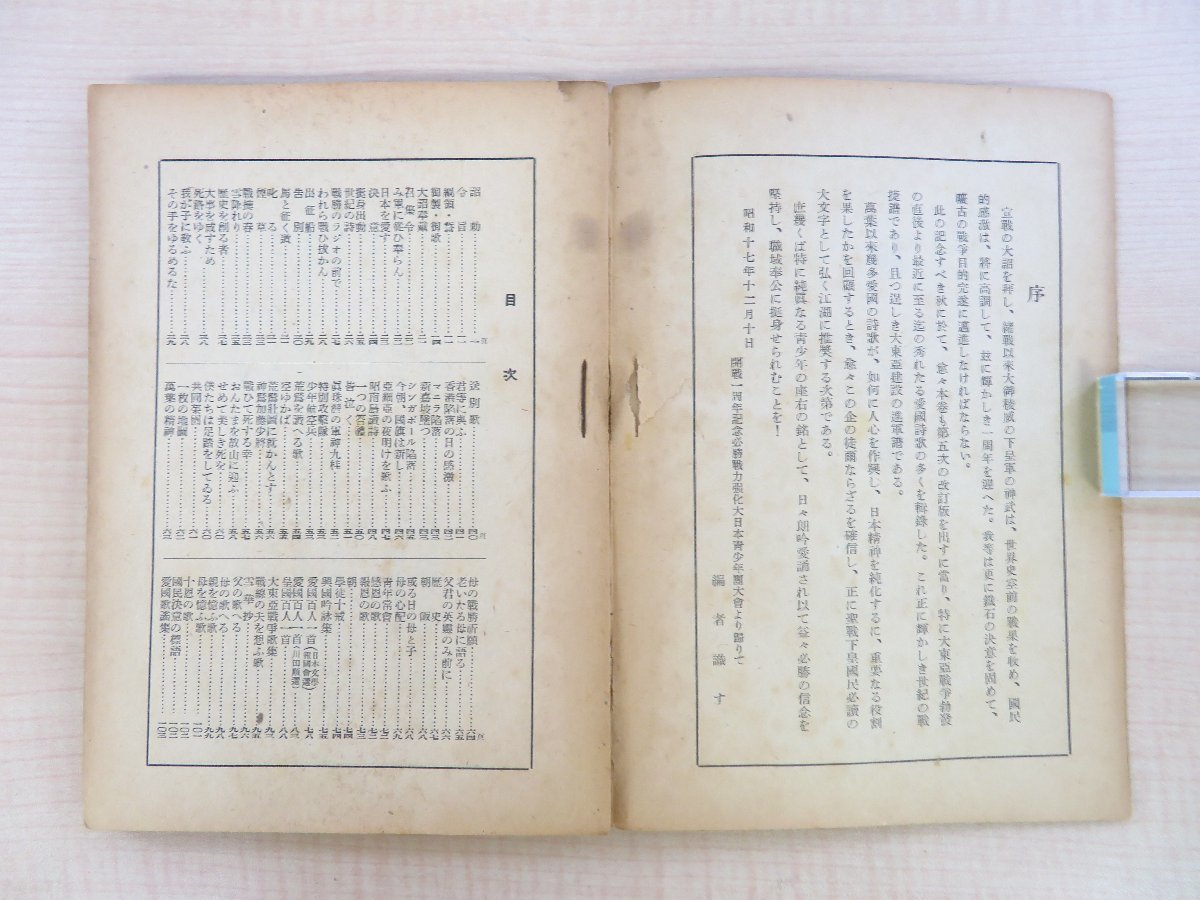 序
宣戰の大詔を拜し、緖戰以來大御稜威の下皇軍の神武は、世界史空前の戰果を收め、國民
的感激は、將に高調して、玆に輝かしき一周年を迎へた。我等は更に鐵石の決意を固めて、
曠古の戰爭目的完遂に邁進しなければならない。
此の記念すべき秋に於て、愈々本卷も第五次の改訂版を出すに當り、特に大東亞戰爭勃發
の直後より最近に至る迄の秀れたる愛國詩歌の多くを輯錄した。これ正に輝かしき世紀の戰
捷譜であり、且つ逞しき大東亞建設の進軍譜である。
萬葉以來幾多愛國の詩歌が、如何に人心を作興し、日本精神を純化するに、重要なる役割
を果したかを回顧するとき、愈々この企の徒爾ならざるを確信し、正に聖戰下皇國民必讀の
大文字として弘く江湖に推奬する次第である。
庶幾くば特に純眞なる靑少年の座右の銘として、日々朗吟愛誦され以て益々必勝の信念を
堅持し、職域奉公に挺身せられむことを！
昭和十七年十二月十日
開戰一周年記念必勝戰力强化大日本靑少年團大會より歸りて
編者識す
目次
詔勅
令旨
綱領・誓
御製・御歌
大詔奉戴
召集令
み軍に從ひ奉らん
日本を愛す
決意
挺身出動
世紀の詩
戰勝のラジオの前で
われら戰ひ拔かん
出征
告別
馬と征く議
叱る
煙草
戰捷の春
雪降れり
歷史を創る者
大事を成すため
死路をゆく
我が子に敎ふ
その手をゆるめるな
送別歌
君等に與ふ
香港陷落の日の感激
マニラ陷落
新嘉坡墜つ
シンガポール陷落
今朝、國旗は新し
亞細亞の夜明けを歌ふ
昭南島讃詩
一つの奇蹟
皆泣く
眞珠灣の軍神九柱
特別攻擊隊
少年航空兵
荒鷲を讃へる歌
空ゆかば
荒鷲壯圖に就かんとす
神鷲加藤少將
戰ひて死する幸
おんたまを故山に迎ふ
せめて美しき死を
僕たちは足踏をしてゐる
共同案例
一枚の地圖
萬葉の精神
母の戰勝祈願
老いたる母に語る
父君の英靈のみ前に
歷史
朝飯
或る日の母と子
母の心配
靑年常會
感恩の歌
報恩の歌
朝
學徒十戒
興國吟詠集
愛國百人一首（日本文學報國會選）
愛國百人一首（川田順選）
皇國百人一首
大東亞戰爭歌集
戰線の夫を想ふ歌
雪華抄
父の歌へる
母の歌へる
親を憶ふ歌
母を憶ふ歌
十恩の歌
國民決意の標語
愛國歌謠集